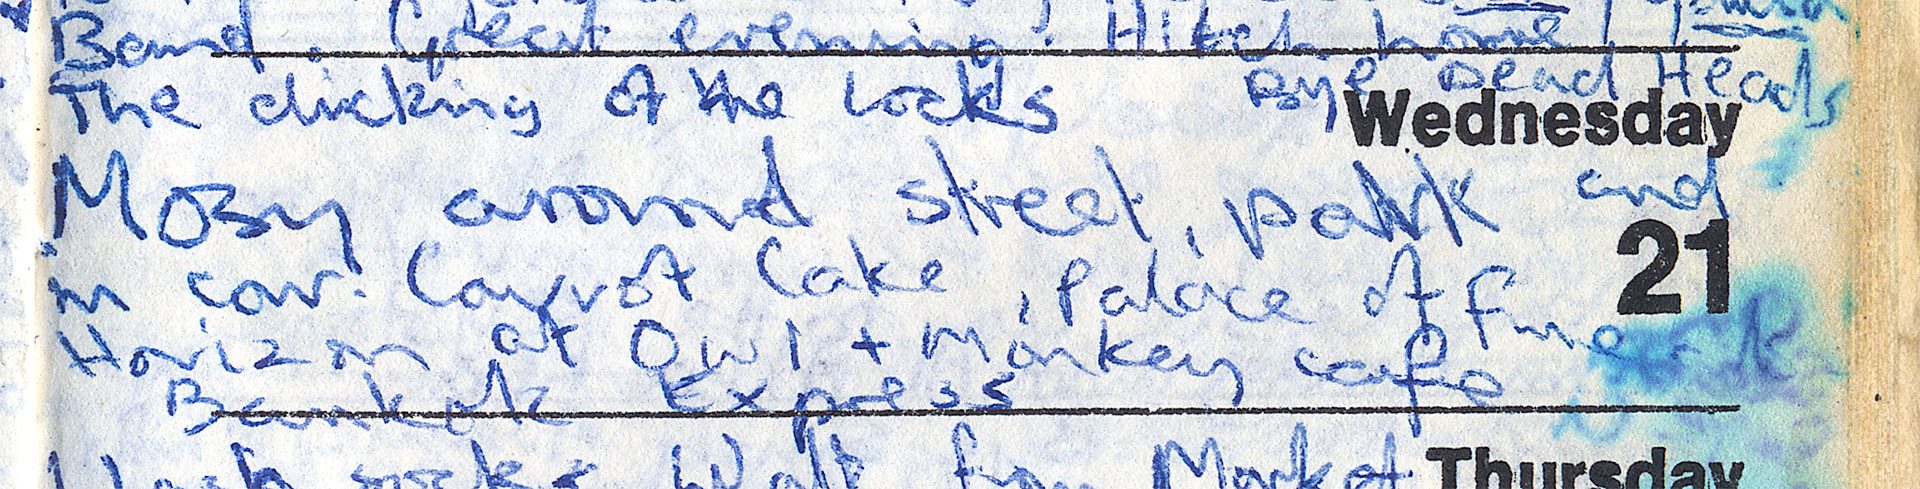 Band. Great evening. Hitch home
The clicking of the locks Bye Dead Heads
Wednesday
Mosy around street, park and
21
in car. Carrot Cake, Palace of fine
Horizon at Owl + Monkey cafe
Bankok Express
Wash socks Walk from Market
Thursday